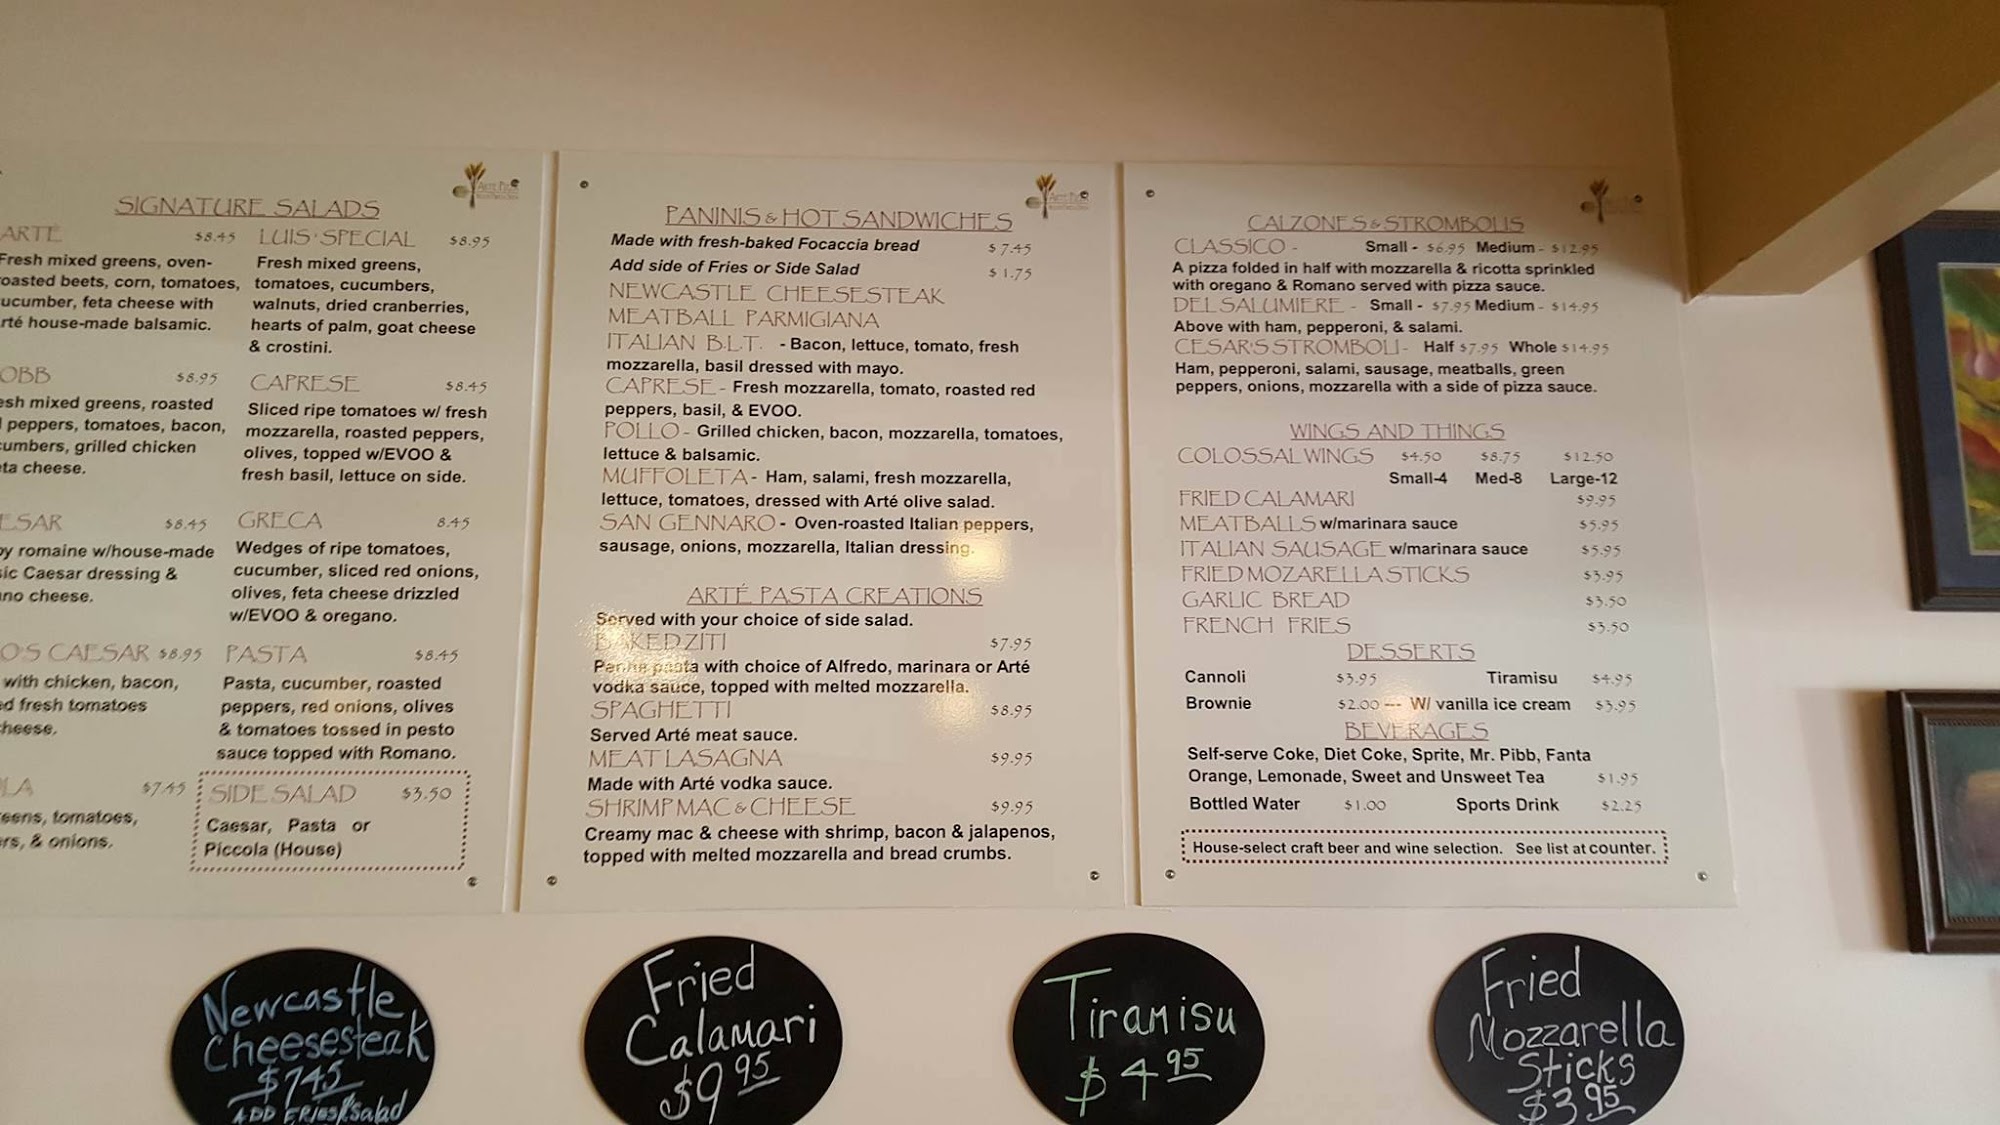 SIGNATURE SALADS
ARTÉ $8.45
Fresh mixed greens, oven-
roasted beets, corn, tomatoes,
cucumber, feta cheese with
Arté house-made balsamic.
OBB $8.95
esh mixed greens, roasted
peppers, tomatoes, bacon,
cumbers, grilled chicken
eta cheese.
ESAR $8.45
romaine w/house-made
Caesar dressing &
ano cheese.
O'S CAESAR $8.95
with chicken, bacon,
ed fresh tomatoes
cheese.
LA $7.45
eens, tomatoes,
ers, & onions.
LUIS' SPECIAL $8.95
Fresh mixed greens,
tomatoes, cucumbers,
walnuts, dried cranberries,
hearts of palm, goat cheese
& crostini.
CAPRESE $8.45
Sliced ripe tomatoes w/ fresh
mozzarella, roasted peppers,
olives, topped w/EVOO &
fresh basil, lettuce on side.
GRECA 8.45
Wedges of ripe tomatoes,
cucumber, sliced red onions,
olives, feta cheese drizzled
w/EVOO & oregano.
PASTA $8.45
Pasta, cucumber, roasted
peppers, red onions, olives
& tomatoes tossed in pesto
sauce topped with Romano.
SIDE SALAD $3.50
Caesar, Pasta or
Piccola (House)
PANINIS & HOT SANDWICHES
Made with fresh-baked Focaccia bread $7.45
Add side of Fries or Side Salad $1.75
NEWCASTLE CHEESESTEAK
MEATBALL PARMIGIANA
ITALIAN B.L.T. - Bacon, lettuce, tomato, fresh
mozzarella, basil dressed with mayo.
CAPRESE - Fresh mozzarella, tomato, roasted red
peppers, basil, & EVOO.
POLLO - Grilled chicken, bacon, mozzarella, tomatoes,
lettuce & balsamic.
MUFFOLETA - Ham, salami, fresh mozzarella,
lettuce, tomatoes, dressed with Arté olive salad.
SAN GENNARO - Oven-roasted Italian peppers,
sausage, onions, mozzarella, Italian dressing.
ARTÉ PASTA CREATIONS
Served with your choice of side salad.
BAKED ZITI $7.95
Penne pasta with choice of Alfredo, marinara or Arté
vodka sauce, topped with melted mozzarella.
SPAGHETTI $8.95
Served Arté meat sauce.
MEAT LASAGNA $9.95
Made with Arté vodka sauce.
SHRIMP MAC & CHEESE $9.95
Creamy mac & cheese with shrimp, bacon & jalapenos,
topped with melted mozzarella and bread crumbs.
CALZONES & STROMBOLIS
CLASSICO - Small - $6.95 Medium - $12.95
A pizza folded in half with mozzarella & ricotta sprinkled
with oregano & Romano served with pizza sauce.
DEL SALUMIERE - Small - $7.95 Medium - $14.95
Above with ham, pepperoni, & salami.
CESAR'S STROMBOLI - Half $7.95 Whole $14.95
Ham, pepperoni, salami, sausage, meatballs, green
peppers, onions, mozzarella with a side of pizza sauce.
WINGS AND THINGS
COLOSSAL WINGS $4.50 $8.75 $12.50
Small-4 Med-8 Large-12
FRIED CALAMARI $9.95
MEATBALLS w/marinara sauce $5.95
ITALIAN SAUSAGE w/marinara sauce $5.95
FRIED MOZARELLA STICKS $3.95
GARLIC BREAD $3.50
FRENCH FRIES $3.50
DESSERTS
Cannoli $3.95 Tiramisu $4.95
Brownie $2.00 --- W/ vanilla ice cream $3.95
BEVERAGES
Self-serve Coke, Diet Coke, Sprite, Mr. Pibb, Fanta
Orange, Lemonade, Sweet and Unsweet Tea $1.95
Bottled Water $1.00 Sports Drink $2.25
House-select craft beer and wine selection. See list at counter.
Newcastle
Cheesesteak
$7.45
ADD FRIES/Salad
Fried
Calamari
$9.95
Tiramisu
$4.95
Fried
Mozzarella
Sticks
$3.95